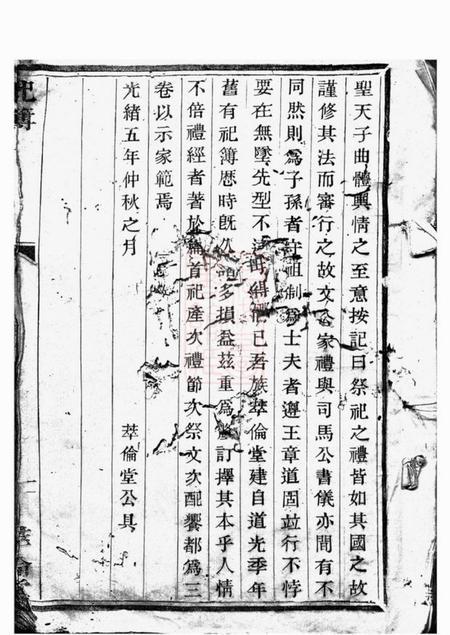 聖天子曲體輿情之至意按記曰祭祀之禮皆如其國之故
謹修其法而審行之故文公家禮與司馬公書儀亦間有不
同然則為子孫者守祖制為士夫者遵王章道固竝行不悖
要在無墜先型不已吾族萃倫堂建自道光季年
舊有祀簿厯時旣久多損益茲重為訂擇其本乎人情
不倍禮經者著於首祀產次禮節次祭文次配饗都為三
卷以示家範焉
光緒五年仲秋之月 萃倫堂公具
祀簿